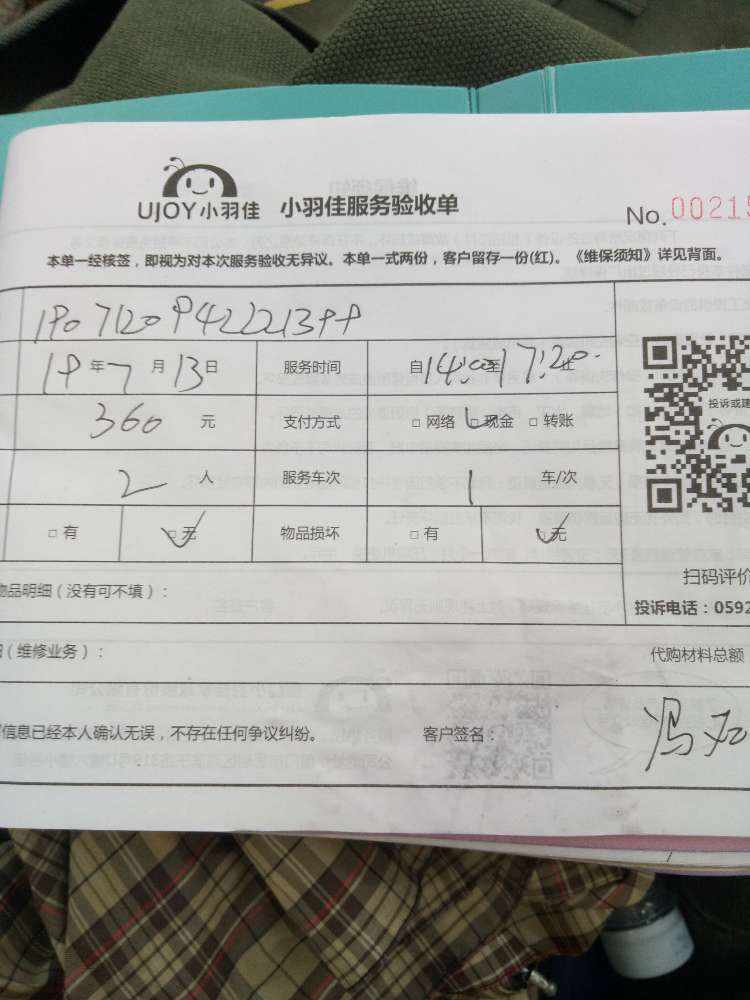 UJOY小羽佳 小羽佳服务验收单
No. 00215
本单一经核签，即视为对本次服务验收无异议。本单一式两份，客户留存一份(红)。《维保须知》详见背面。
19年7月13日 服务时间 自14:00至17:20止
360元 支付方式 □网络 □现金 □转账
投诉或建
2人 服务车次 1车/次
□有 □无 物品损坏 □有 □无
扫码评价
物品明细（没有可不填）：
投诉电话：0592
（维修业务）： 代购材料总额
信息已经本人确认无误，不存在任何争议纠纷。 客户签名： 冯